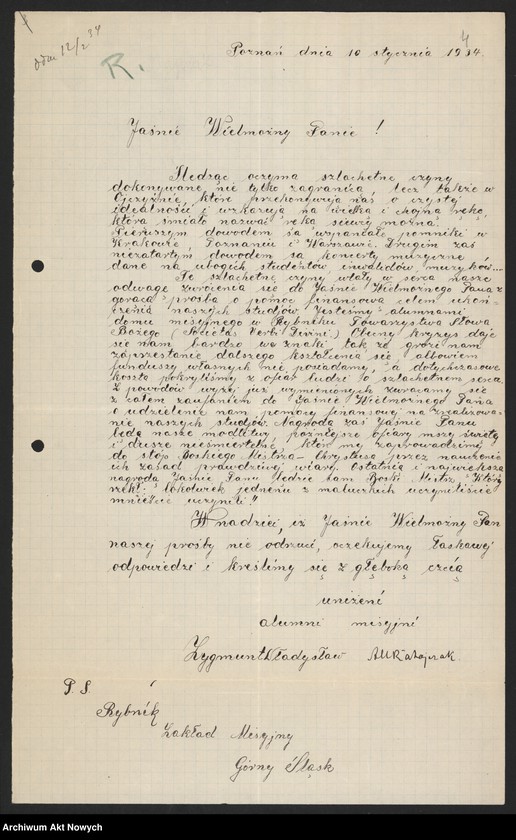 odm 12/2 34
R.
4
Poznań dnia 10 stycznia 1934.
Jaśnie Wielmożny Panie !
Śledząc oczyma szlachetne czyny
dokonywane nie tylko zagranicą lecz także w
Ojczyźnie, które przekonywują nas o czystej
idealności i wskazują na wielką i chojną rękę,
którą śmiało nazwać ręką siewcy można.
Pierwszym dowodem są wspaniałe pomniki w
Krakowie Poznaniu i Warszawie. Drugim zaś
niezatartym dowodem są koncerty muzyczne
dane na ubogich studentów inwalidów, muzyków...
Te szlachetne czyny wlały w serca nasze
odwagę zwrócenia się do Jaśnie Wielmożnego Pana z
gorącą prośbą o pomoc finansową celem ukoń-
czenia naszych studjów. Jesteśmy alumnami
domu misyjnego w Rybniku Towarzystwa Słowa
Bożego (Societas Verbi Divini) Obecny kryzys daje
się nam bardzo we znaki tak że grozi nam
zaprzestanie dalszego kształcenia się, albowiem
funduszy własnych nie posiadamy, a dotychczasowe
koszta pokryliśmy z ofiar ludzi o szlachetnem sercu.
Z powodów wyżej już wymienionych zwracamy się
z całem zaufaniem do Jaśnie Wielmożnego Pana
o udzielenie nam pomocy finansowej na zrealizowa-
nie naszych studjów. Nagrodą zaś Jaśnie Panu
będą nasze modlitwy, późniejsze ofiary mszy świętej
i dusze nieśmiertelne, które my zaprowadzimy
do stóp Boskiego Mistrza - Chrystusa przez nauczenie
ich zasad prawdziwej wiary. Ostatnią i największą
nagrodą Jaśnie Panu będzie sam Boski Mistrz, Który
rzekł: "Cokolwiek jednemu z maluczkich uczyniliście
mnieście uczynili".
W nadziei, iż Jaśnie Wielmożny Pan
naszej prośby nie odrzuci, oczekujemy łaskawej
odpowiedzi i kreślimy się z głęboką czcią
uniżeni
alumni misyjni
Zygmunt Władysław Ratajczak
P. S.
Rybnik
Zakład Misyjny
Górny Śląsk
Archiwum Akt Nowych